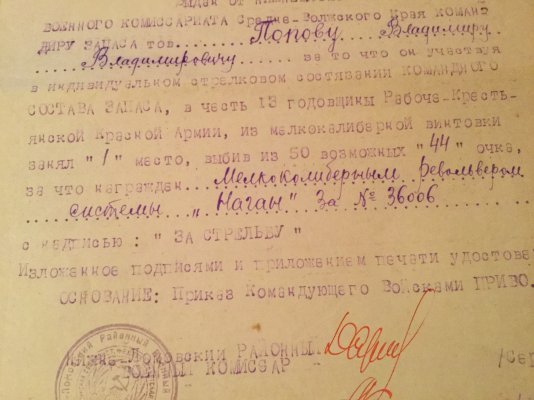 ВОЕННОГО КОМИССАРИАТА Средне-Волжского Края КОМАН-
ДИРУ ЗАПАСА тов.....Попову Владимиру
Владимировичу......за то что он участвуя
в индивидуальном стрелковом состязании КОМАНДНОГО
СОСТАВА ЗАПАСА, в честь 13 годовщины Рабоче-Кресть-
янской Красной Армии, из мелкокалиберной винтовки
занял "1" место, выбив из 50 возможных "44" очка,
за что награжден...Мелкокалиберным Револьвером
системы „Наган" За № 36006
с надписью: "ЗА СТРЕЛЬБУ"
Изложенное подписями и приложением печати удостове
ОСНОВАНИЕ: Приказ Командующего Войсками ПРИВО.
Ломовский РАЙОННЫ
ВОЕННЫЙ КОМИССАР